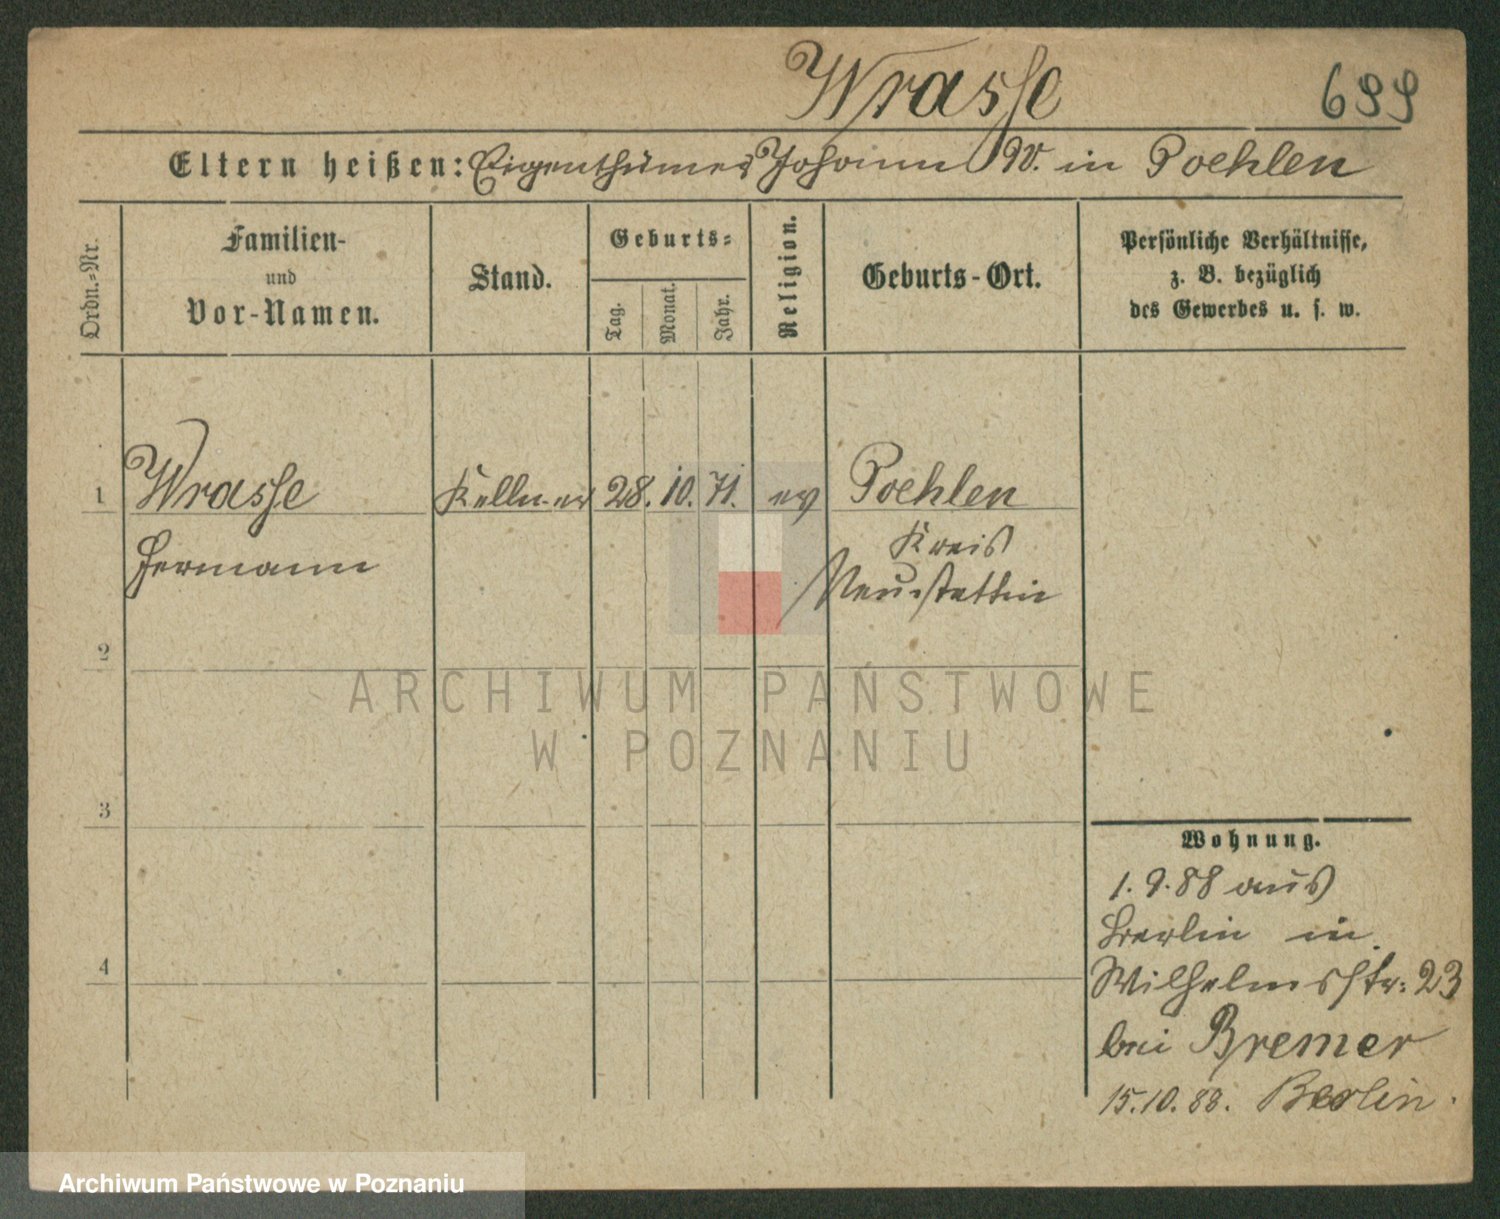 Wrasse
699
Eltern heißen: Eigenthümer Johann W. in Poehlen
Ordn.-Nr.
Familien-
und
Vor-Namen.
Stand.
Geburts-
Tag.
Monat.
Jahr.
Religion.
Geburts-Ort.
Persönliche Verhältnisse,
z. B. bezüglich
des Gewerbes u. s. w.
1 Wrasse Kellner 28. 10. 71. ev Poehlen
Hermann
Kreis
Neustettin
2
ARCHIWUM PAŃSTWOWE
W POZNANIU
3
Wohnung.
1. 9. 88 aus
Berlin in
4
Wilhelmsstr. 23
bei Bremer
15. 10. 88. Berlin.
Archiwum Państwowe w Poznaniu